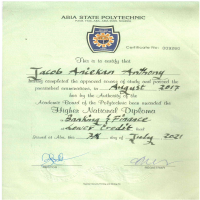 ABIA STATE POLYTECHNIC
Certificate No:
This is to certify that
Jacob Aniekan Anthony
having completed the approved course of study and passed the
prescribed examinations in August 2017
has by the Authority of the
Academic Board of the Polytechnic been awarded the
Higher National Diploma
Banking & Finance
Lower Credit
July 2021